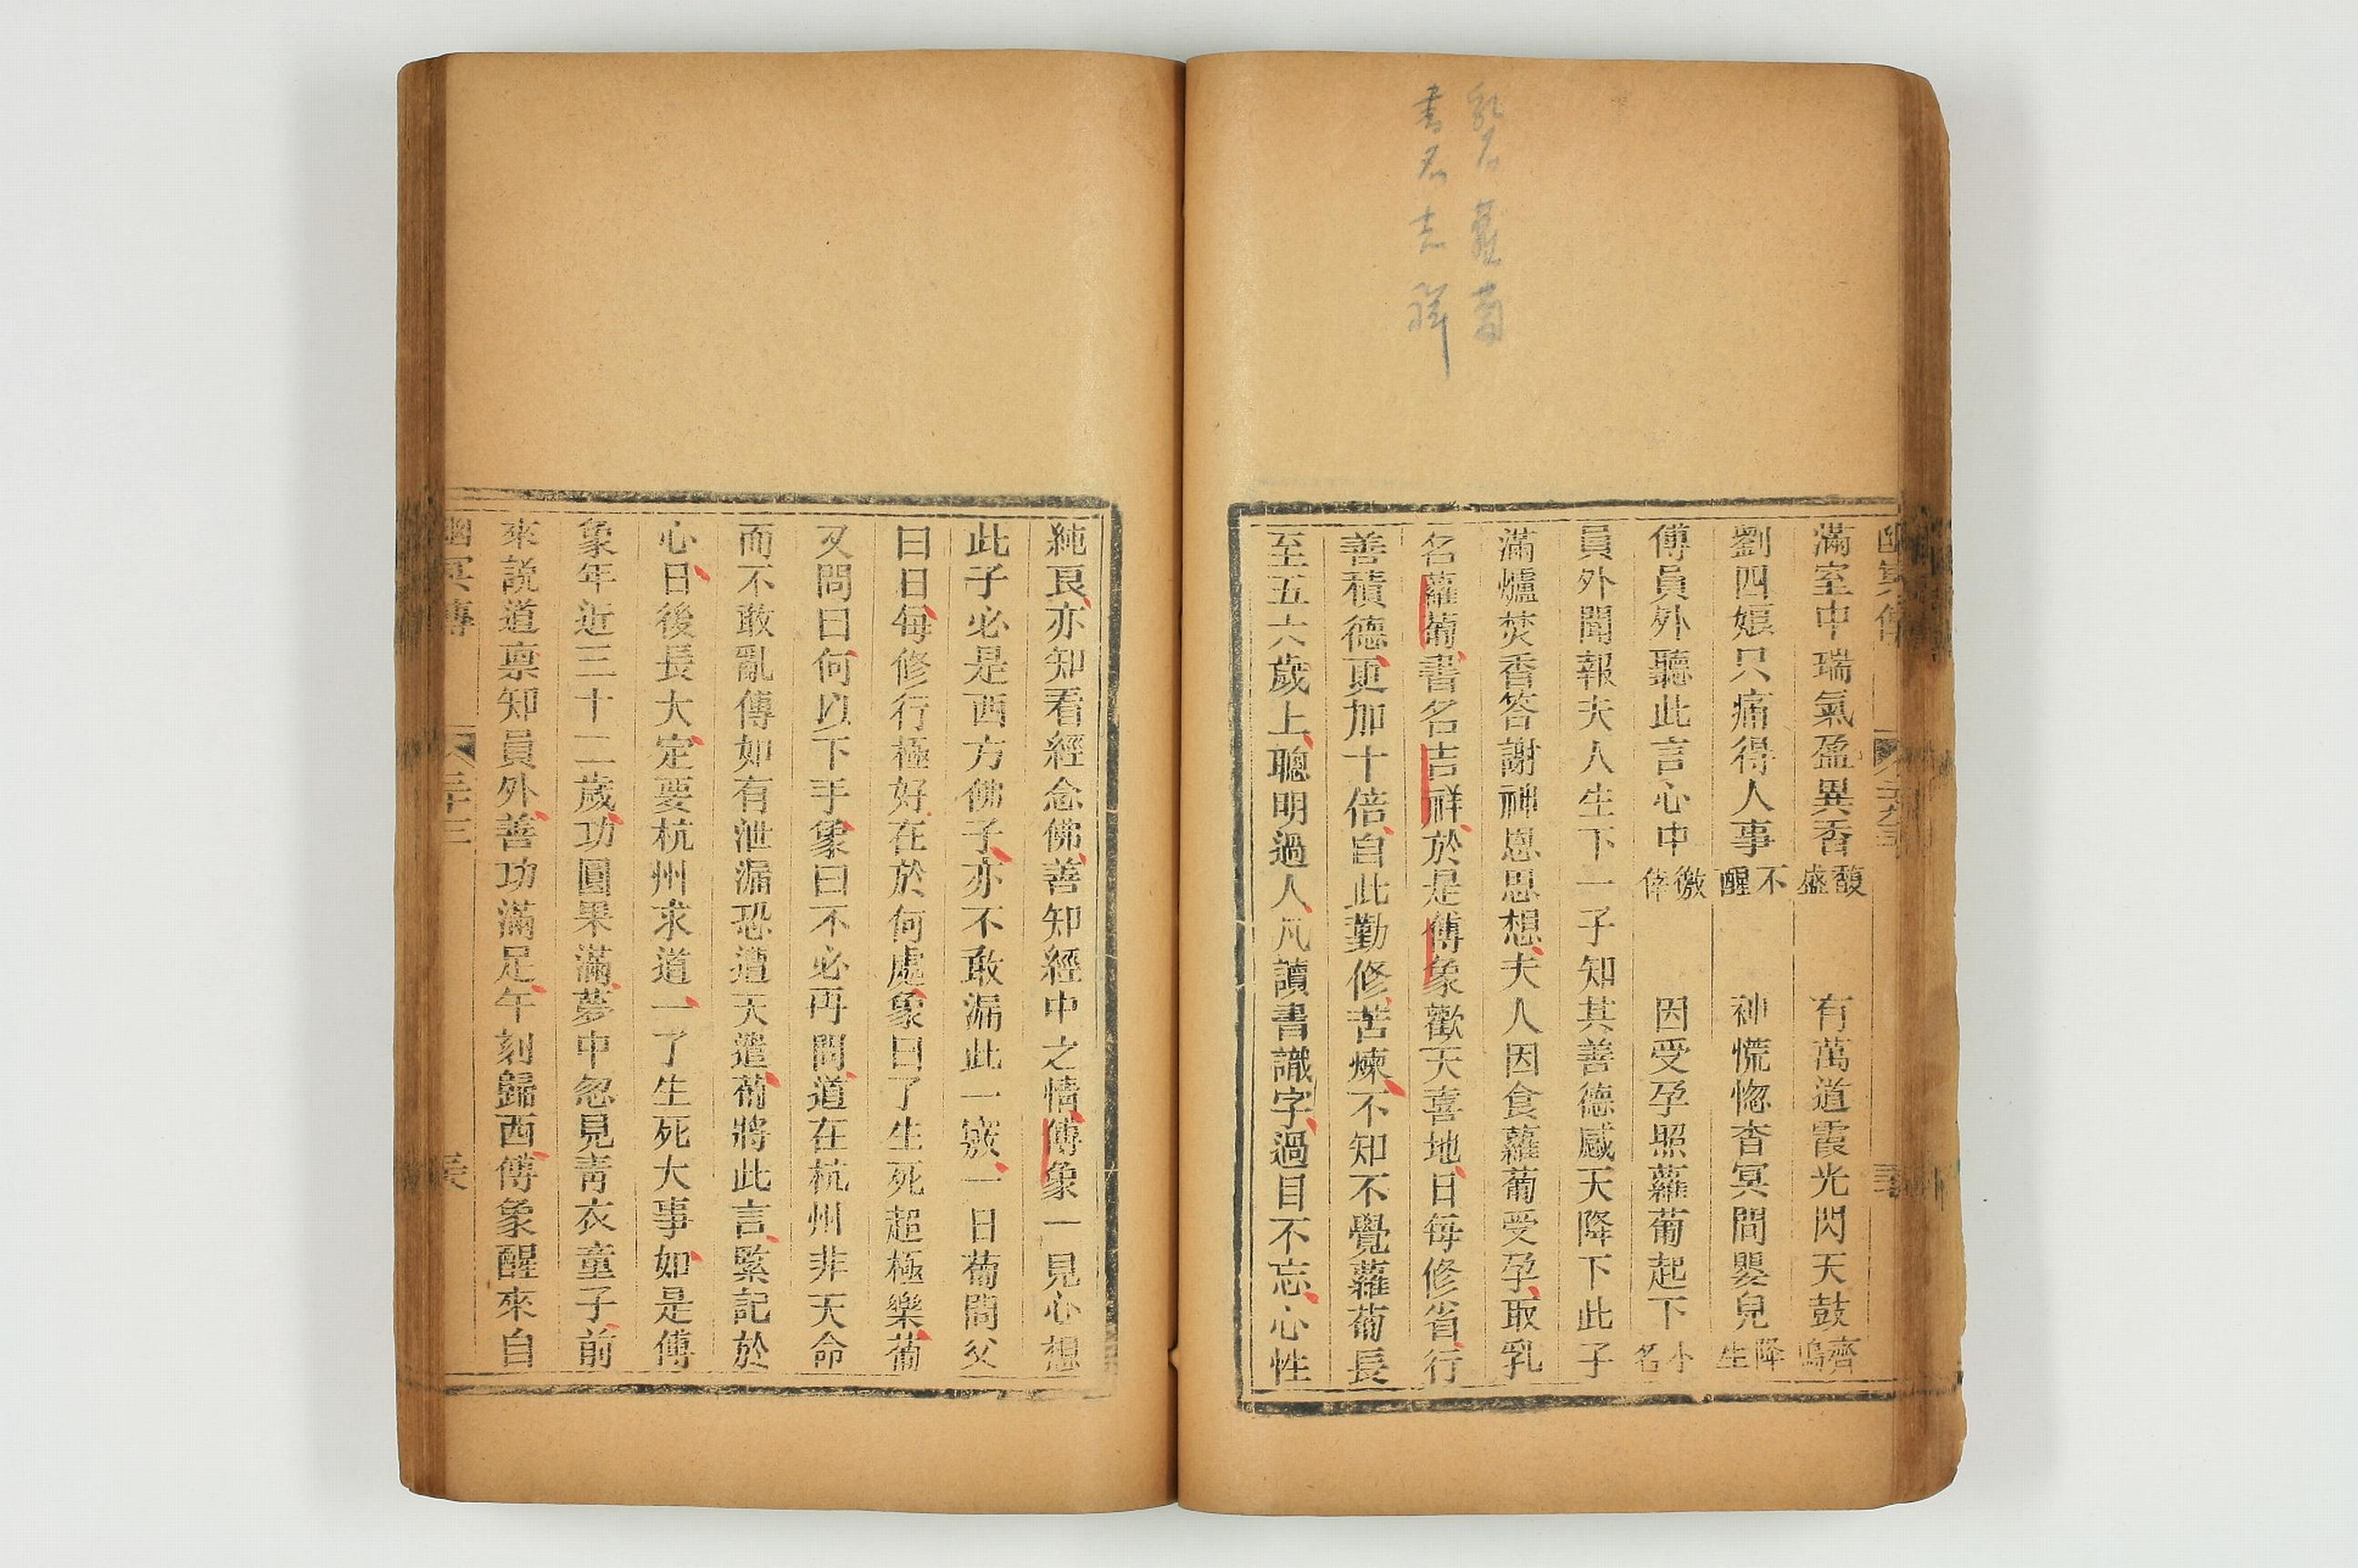 乳名蘿蔔
書名吉祥
滿室中瑞氣盈異香馥盛　有萬道霞光閃天鼓齊鳴
劉四娘只痛得人事不醒　神慌惚杳冥間嬰兒降生
傅員外聽此言心中徼倖　因受孕照蘿蔔起下小名
員外聞報夫人生下一子知其善德感天降下此子
滿爐焚香答謝神恩思想夫人因食蘿蔔受孕取乳
名蘿蔔書名吉祥於是傅象歡天喜地日每修省行
善積德更加十倍自此勤修苦煉不知不覺蘿蔔長
至五六歲上聰明過人凡讀書識字過目不忘心性
純良亦知看經念佛善知經中之情傅象一見心想
此子必是西方佛子亦不敢漏此一竅一日蔔問父
曰日每修行極好在於何處象曰了生死超極樂蔔
又問曰何以下手象曰不必再問道在杭州非天命
而不敢亂傳如有泄漏恐遭天譴蔔將此言緊記於
心日後長大定要杭州求道一了生死大事如是傅
象年近三十二歲功圓果滿夢中忽見青衣童子前
來說道稟知員外善功滿足午刻歸西傅象醒來自
幽冥傳
三十三